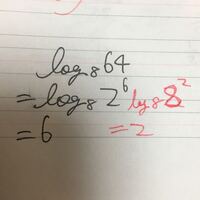 log₈64
=log₈2⁶ log₈8²
=6 =2